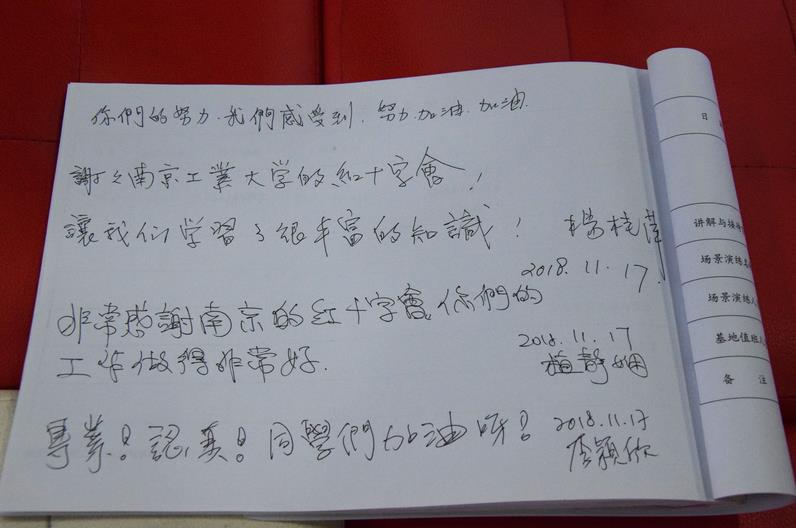 你們的努力.我們感受到.努力.加油.加油.
謝々南京工業大学的紅十字會！
讓我们学習了很丰富的知識！ 楊桂
2018.11.17.
非常感謝南京的红十字會,你們的
工作做得非常好.
2018.11.17
靜嫻
專業！認真！同學們加油呀！
2018.11.17
李穎欣
日
讲解与接待
场景演练
场景演练人
基地值班人
备 注